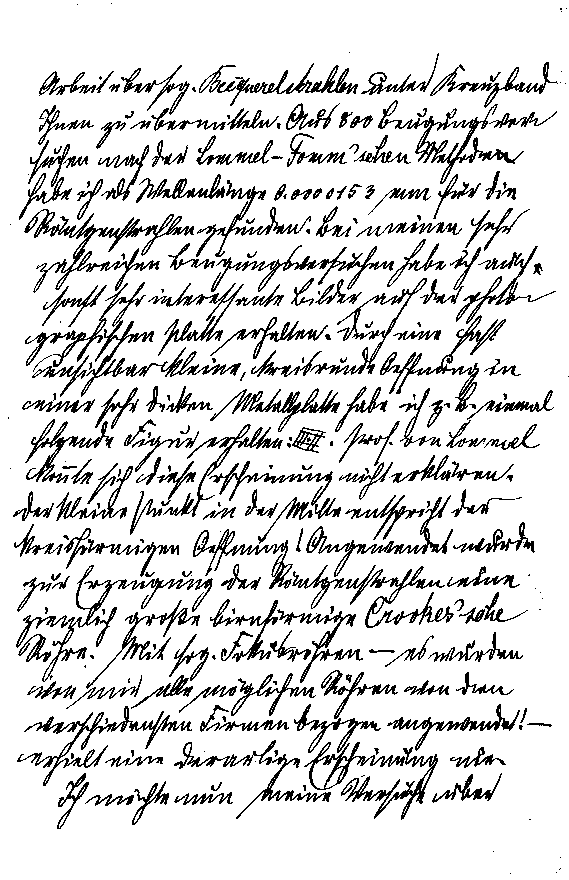 Arbeit über sog. Becquerelstrahlen unter Kreuzband
Ihnen zu übermitteln. Aus 800 Beugungsver-
suchen nach der Lommel-Fomm'schen Methode
habe ich als Wellenlänge 0.0000153 mm für die
Röntgenstrahlen gefunden. Bei meinen sehr
zahlreichen Beugungsversuchen habe ich auch
sonst sehr interessante Bilder auf der photo-
graphischen Platte erhalten. Durch eine fast
unsichtbar kleine, kreisrunde Oeffnung in
einer sehr dicken Metallplatte habe ich z. B. einmal
folgende Figur erhalten: . Prof. von Lommel
konnte sich diese Erscheinung nicht erklären.
Der kleine Punkt in der Mitte entspricht der
kreisförmigen Oeffnung! Angewendet wurde
zur Erzeugung der Röntgenstrahlen eine
ziemlich große birnförmige Crookes'sche
Röhre. Mit sog. Fokusröhren — es wurden
von mir alle möglichen Röhren von den
verschiedensten Firmen bezogen angewendet! —
erhielt eine derartige Erscheinung nie.
Ich möchte nun meine Versuche über